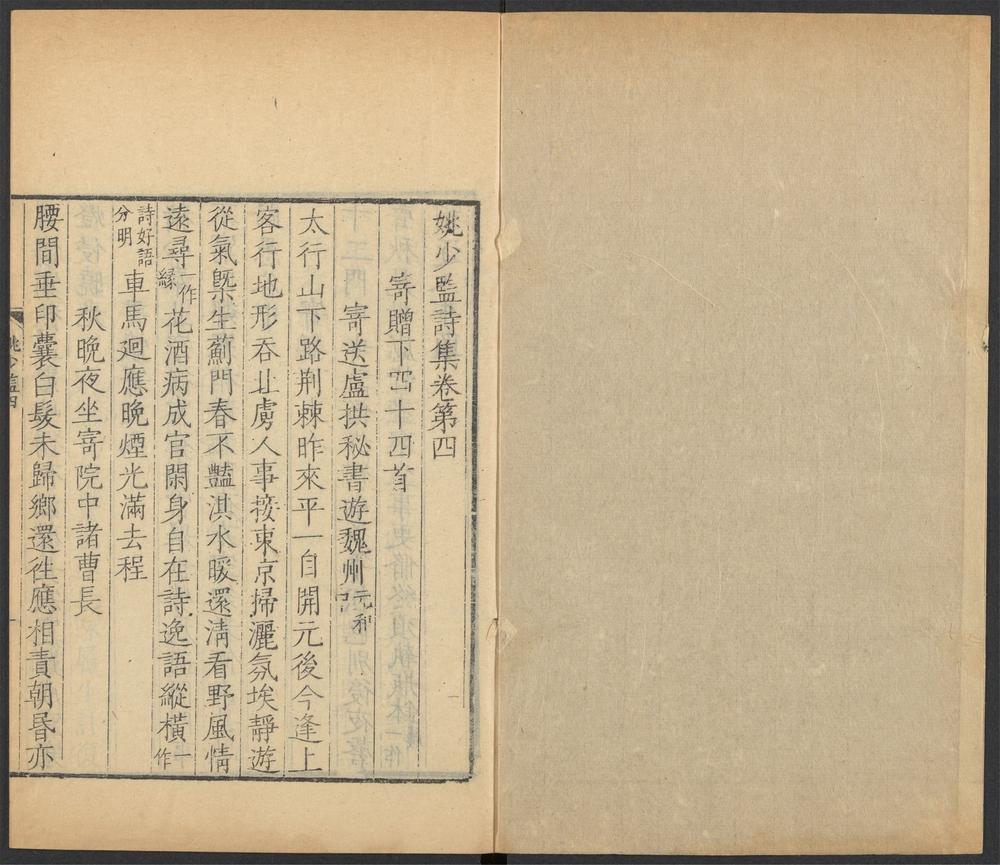 姚少監詩集卷第四
寄贈下四十四首
寄送盧拱秘書遊魏州元和
太行山下路荆棘昨來平一自開元後今逢上
客行地形吞北虜人事接東京掃灑氛埃靜遊
從氣槩生薊門春不豔淇水暖還淸看野風情
遠尋一作緣花酒病成官閑身自在詩逸語縱橫一作
詩好語分明車馬迴應晚煙光滿去程
秋晚夜坐寄院中諸曹長
腰間垂印囊白髮未歸鄉還往應相責朝昏亦
姚少監四